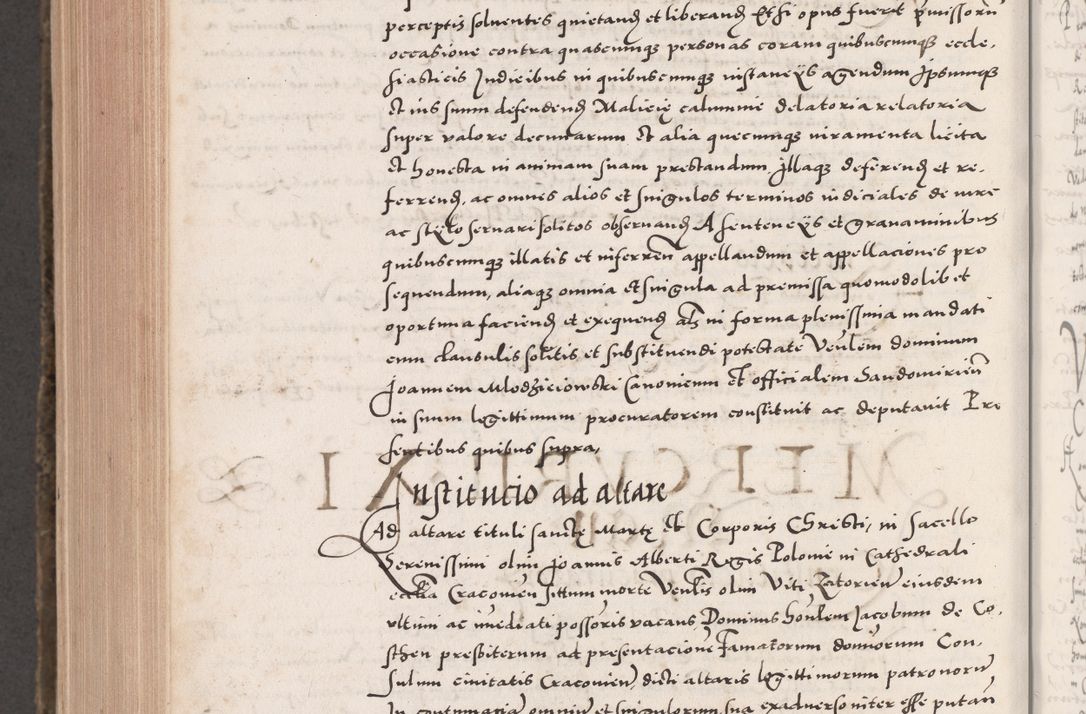 perceptis soluentes quietand et liberand Et si opus fuerit pmissorū
occasione contra quascumqꝫ personas coram quibuscumqꝫ eccle-
siasticis Iudicibus in quibuscumqꝫ instancÿs agendum Ipsumqꝫ
Et ius suum defendend Malicię calumnie delatoria relatoria
super valore decimarum et alia quecumqꝫ iuramenta licita
et honesta in animam suam prestandum, Illaqꝫ deferend et re-
ferrend, ac omnes alios et singulos terminos iudiciales de iure
ac stylo seruari solitos obseruand A sentencÿs et grauaminibus
quibuscumqꝫ illatis et inferren appellandum et appellaciones pro
sequendum, aliaqꝫ omnia et singula ad premissa quomodolibet
oportuna faciend et exequend als in forma plenissima mandati
cum clausulis solitis et substituendi potestate Venlem dominum
Joannem Mlodzieiowski Canonicum et officialem Sandomirień
in suum legittimum procuratorem constituit ac deputauit Pre
sentibus quibus supra,
Institucio ad altare
Ad altare tituli sanctę Martę et Corporis Christi, in sacello
Serenissimi olim Joannis Alberti Regis Polonie in Cathedrali
ecclīa Cracouień situm morte Venlis olim Viti Zatorień eiusdem
vltimi ac imediati possoris vacans Dominus honlem Jacobum de Co-
schen presbiterum ad presentacionē Famatorum dominorum Con-
sulum ciuitatis Cracouień, dicti altaris legittimorum patronorū
In contumaciā omniū et singulorum sua exaduerso inter esse putań